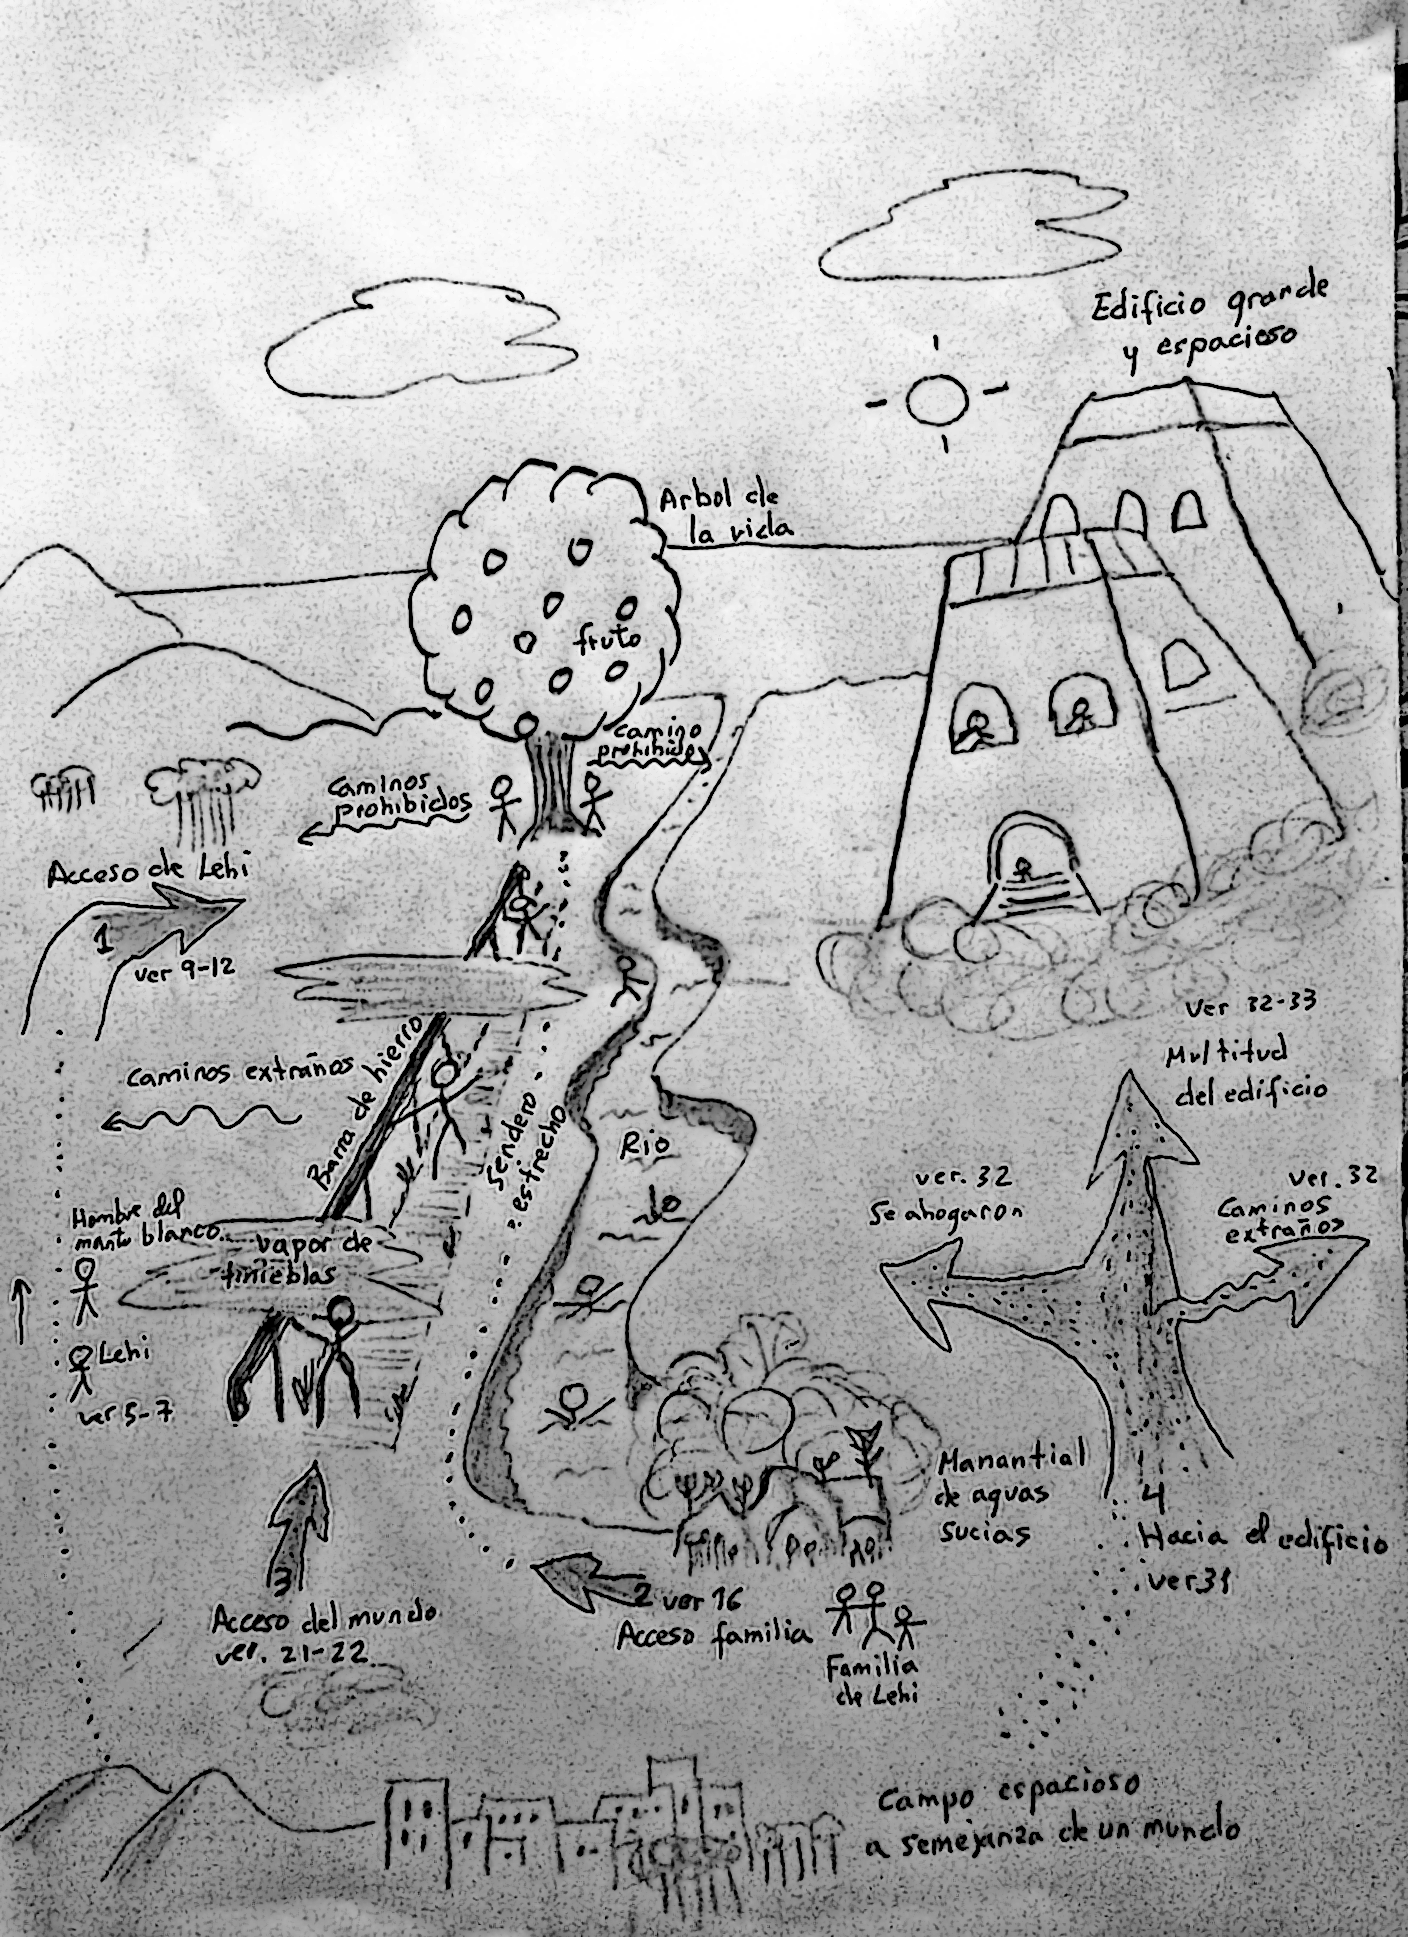 Edificio grande
y espacioso
Arbol de
la vida
fruto
camino
prohibido
caminos
prohibidos
Acceso de Lehi
1
ver 9-12
caminos extraños
Barra de hierro
Sendero
estrecho
Rio
ver 32-33
Multitud
del edificio
ver. 32
Se ahogaron
ver. 32
Caminos
extraños
Hombre del
manto blanco
vapor de
tinieblas
Lehi
ver 5-7
Manantial
de aguas
sucias
4
Hacia el edificio
ver 31
3
Acceso del mundo
ver. 21-22
2 ver 16
Acceso familia
Familia
de Lehi
Campo espacioso
a semejanza de un mundo